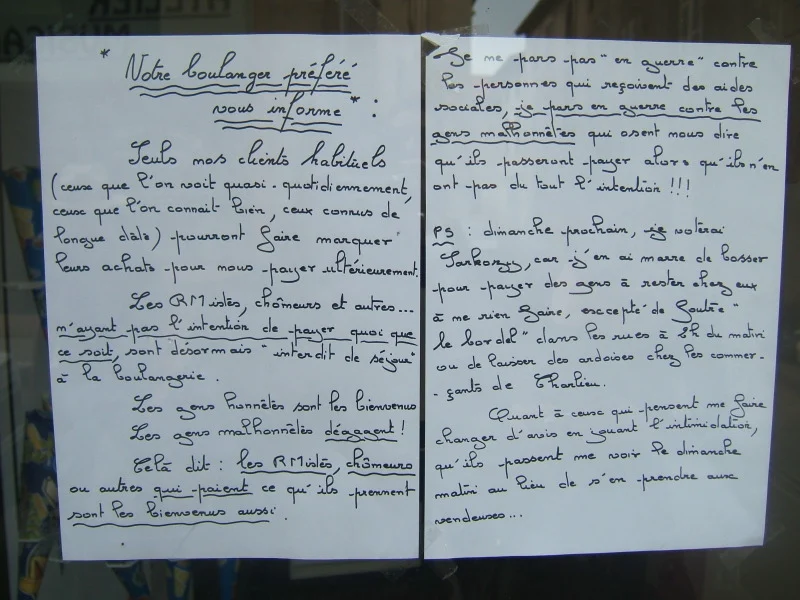 * Notre boulanger préféré
vous informe * :
Seuls nos clients habituels
(ceux que l'on voit quasi-quotidiennement,
ceux que l'on connait bien, ceux connus de
longue date) pourront faire marquer
leurs achats pour nous payer ultérieurement.
Les RMistes, chômeurs et autres...
n'ayant pas l'intention de payer quoi que
ce soit, sont désormais "interdit de séjour"
à la boulangerie.
Les gens honnêtes sont les bienvenus
Les gens malhonnêtes dégagent !
Celà dit : les RMistes, chômeurs
ou autres qui paient ce qu'ils prennent
sont les bienvenus aussi.
Je me pars pas "en guerre" contre
les personnes qui reçoivent des aides
sociales, je pars en guerre contre les
gens malhonnêtes qui osent nous dire
qu'ils passeront payer alors qu'ils n'en
ont pas du tout l'intention !!!
PS : dimanche prochain, je voterai
Sarkozy, car j'en ai marre de bosser
pour payer des gens à rester chez eux
à ne rien faire, excepté de foutre "
le bordel" dans les rues à 2h du matin
ou de laisser des ardoises chez les commer-
-çants de Charlieu.
Quant à ceux qui pensent me faire
changer d'avis en jouant l'intimidation,
qu'ils passent me voir le dimanche
matin au lieu de s'en prendre aux
vendeuses...